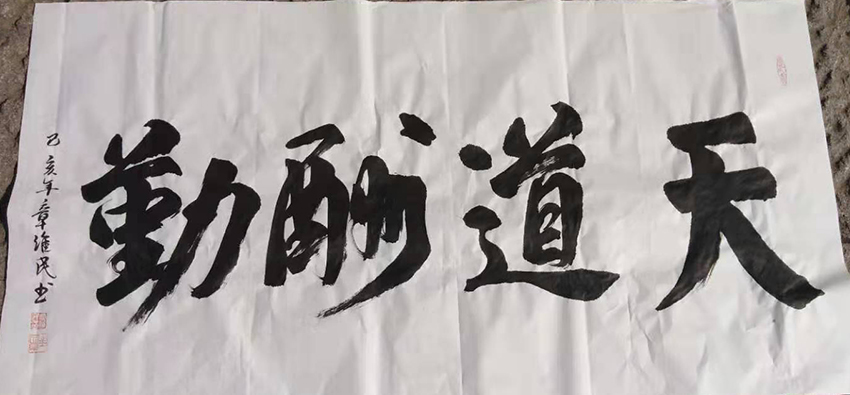 天道酬勤
己亥年章維民书